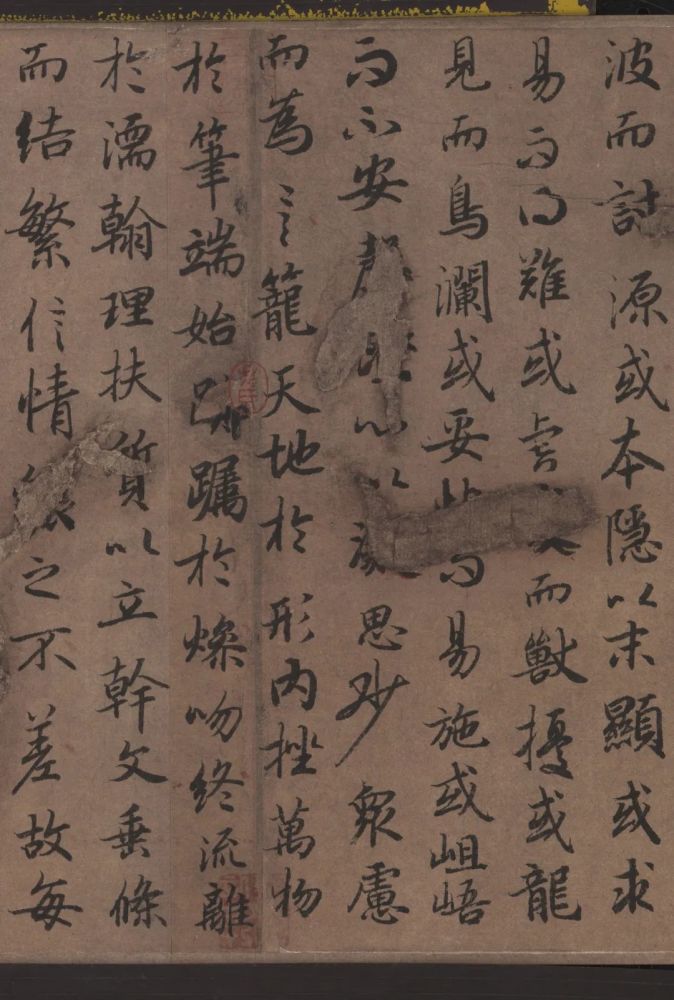 波而討源或本隱以末顯或求
易而得難或而獸擾或龍
見而鳥瀾或妥而易施或岨峿
而不安心以思眇衆慮
而為言籠天地於形内挫萬物
於筆端始躅於燥吻終流離
於濡翰理扶質以立幹文垂條
而結繁信情之不差故每